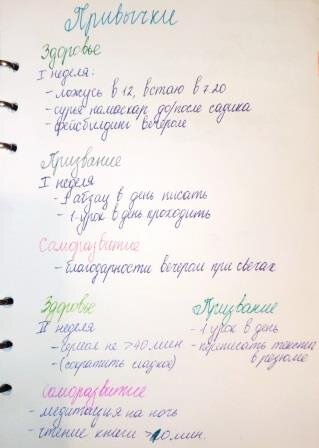 Привычки
Здоровье
I неделя:
- ложусь в 12, встаю в 7.20
- сурья намаскар до/после садика
- фейсбилдинг вечером
Призвание
I неделя
- 1 абзац в день писать
- 1 урок в день проходить
Саморазвитие
- благодарности вечером при свечах
Здоровье
II неделя
- сериал не >40 мин
- (сократить сладкое)
Призвание
- 1 урок в день
- переписать тексты
в резюме
Саморазвитие
- медитация на ночь
- чтение книги >10 мин.